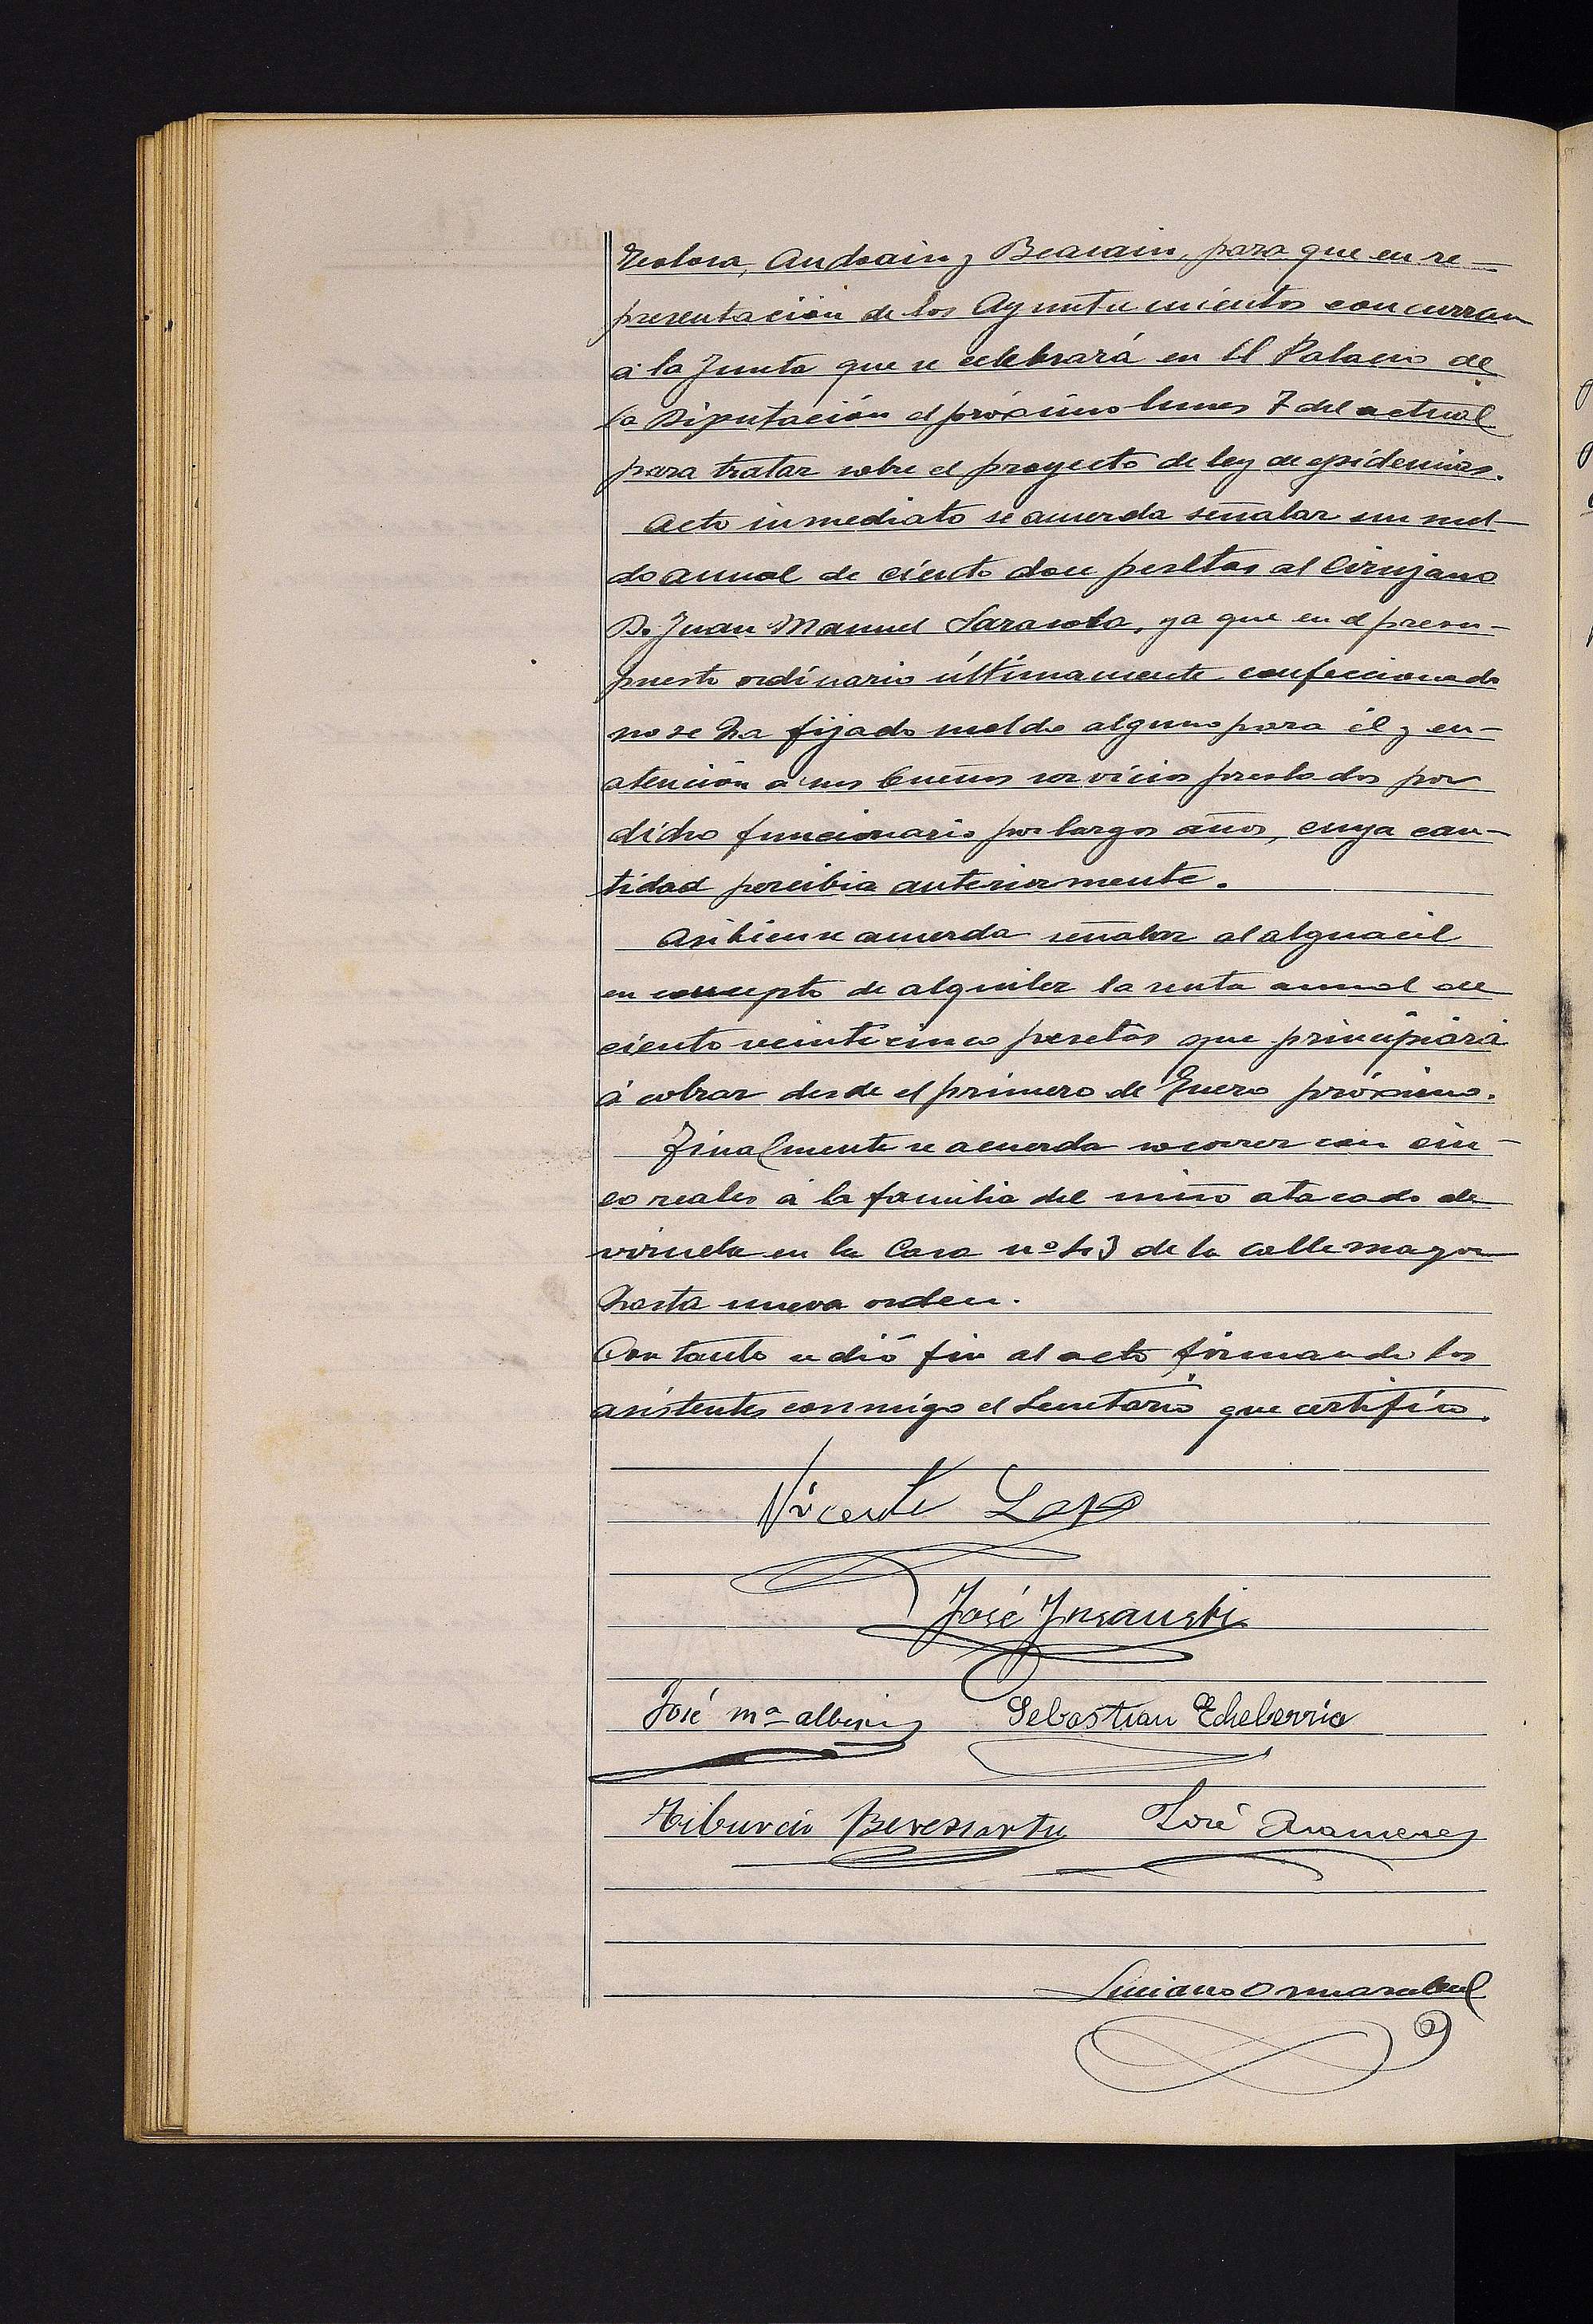 Tolosa, Andoain y Beasain, para que en re-
presentación de los Ayuntamientos concurran
á la Junta que se celebrará en El Palacio de
la Diputación el próximo lunes 7 del actual
para tratar sobre el proyecto de ley de epidemias.
Acto inmediato se acuerda señalar un suel-
do annal de ciento doce pesetas al Cirujano
D. Juan Manuel Sarasola, ya que en el presu-
puesto ordinario últimamente confeccionado
no se ha fijado sueldo alguno para él y en-
atención a sus buenos servicios prestados por
dicho funcionario por largos años, cuya can-
tidad percibia anteriormente.
Asi bien se acuerda señalar al alguacil
en concepto de alquiler la renta annal de
ciento veinticinco pesetas que principiará
á cobrar desde el primero de Enero próximo.
Finalmente se acuerda socorrer con cin-
co reales á la familia del niño atacado de
viruela en la Casa nº 43 de la calle mayor
hasta nueva orden.
Con tanto se dió fin al acto firmando los
asistentes conmigo el Secretario que certifico.
Vicente
José Insausti
José Mª Sebastian Echeberria
Tiburcio José
Luciano